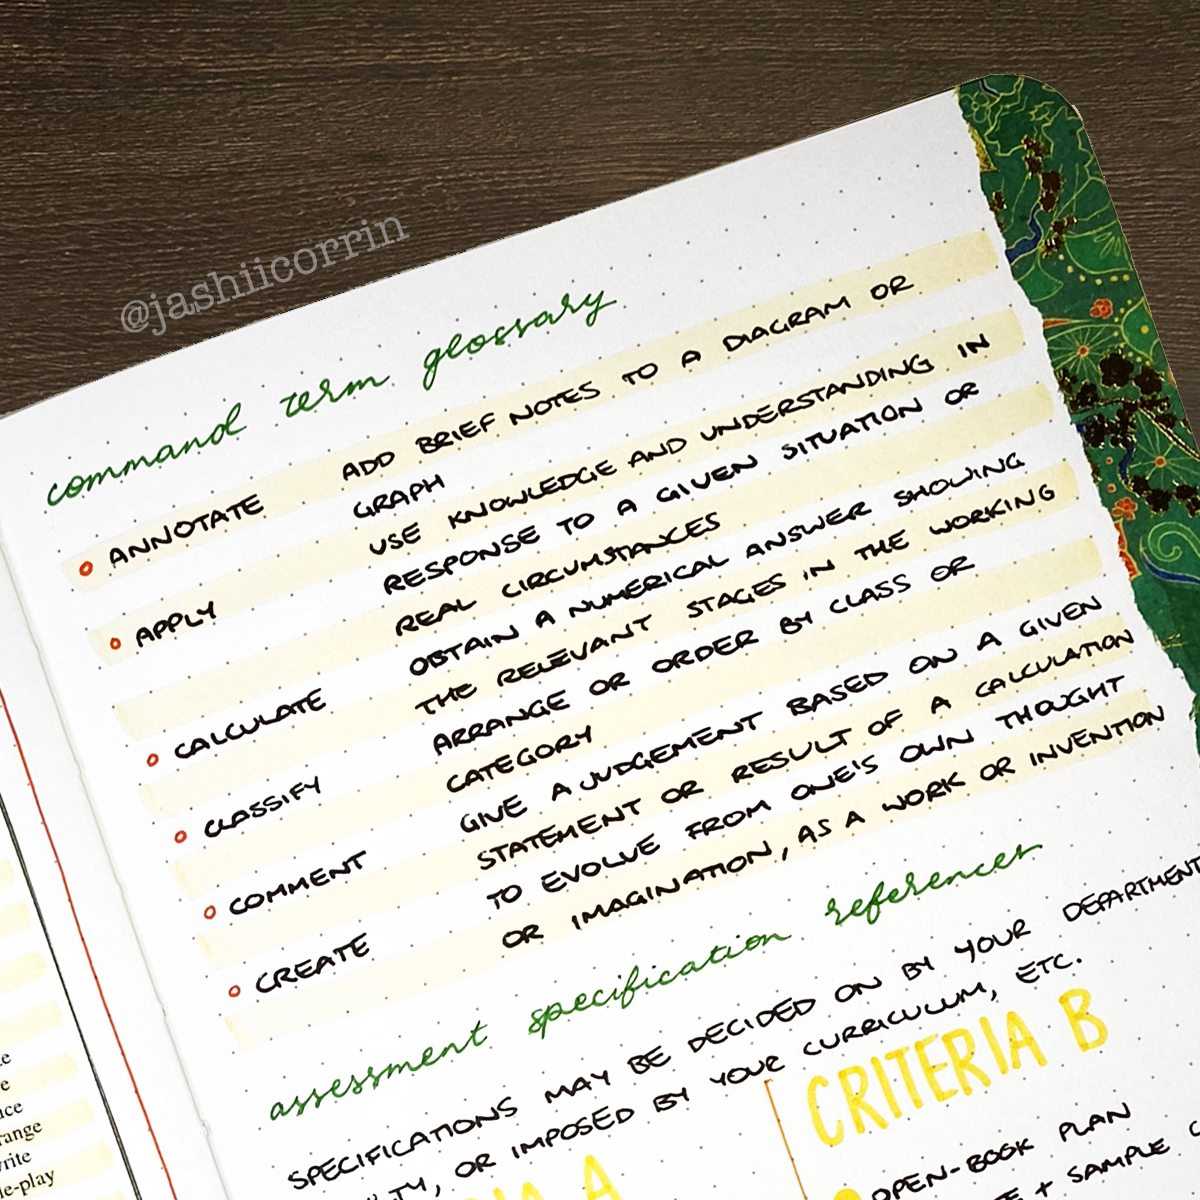 @jashiicorrin
command term glossary
ANNOTATE ADD BRIEF NOTES TO A DIAGRAM OR
GRAPH
APPLY USE KNOWLEDGE AND UNDERSTANDING IN
RESPONSE TO A GIVEN SITUATION OR
REAL CIRCUMSTANCES
CALCULATE OBTAIN A NUMERICAL ANSWER SHOWING
THE RELEVANT STAGES IN THE WORKING
CLASSIFY ARRANGE OR ORDER BY CLASS OR
CATEGORY
COMMENT GIVE A JUDGEMENT BASED ON A GIVEN
STATEMENT OR RESULT OF A CALCULATION
CREATE TO EVOLVE FROM ONE'S OWN THOUGHT
OR IMAGINATION, AS A WORK OR INVENTION
assessment specification references
SPECIFICATIONS MAY BE DECIDED ON BY YOUR DEPARTMENT
OR IMPOSED BY YOUR CURRICULUM, ETC.
A
CRITERIA B
OPEN-BOOK PLAN
+ SAMPLE